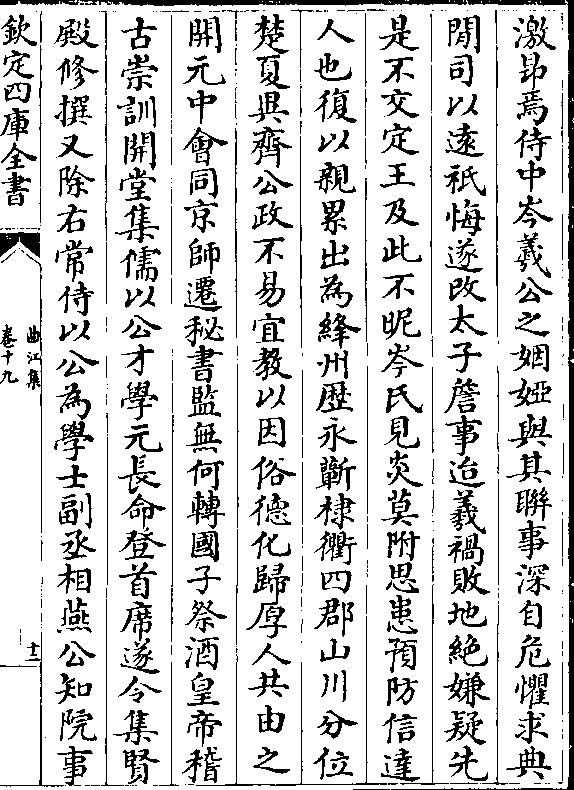 激昂焉侍中岑羲公之姻婭與其聯事深自危懼求典
閒司以遠祇悔遂改太子詹事迨羲禍敗地絶嫌疑先
是不交定王及此不昵岑氏見炎莫附思患預防信達
人也復以親累出為絳州歴永蘄棣衢四郡山川分位
楚夏異齊公政不易宜教以因俗德化歸厚人共由之
開元中會同京師遷秘書監無何轉國子祭酒皇帝稽
古崇訓開堂集儒以公才學元長命登首席遂令集賢
殿修撰又除右常侍以公為學士副丞相燕公知院事
欽定四庫全書
曲江集
卷十九
十二